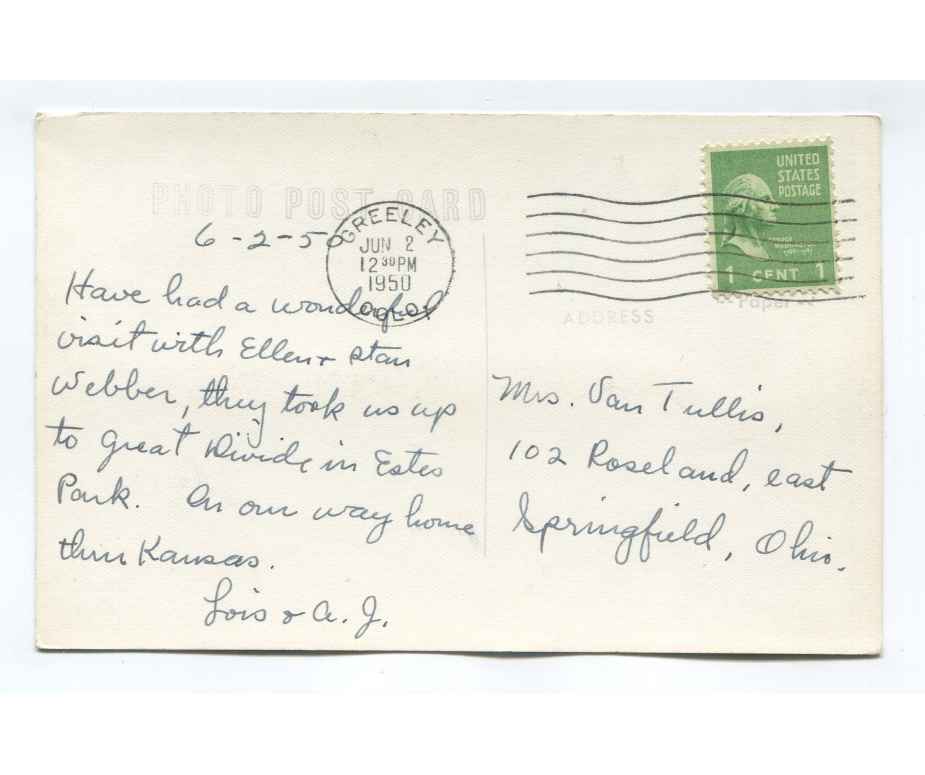 PHOTO POST CARD
6-2-50
GREELEY
JUN 2
12 30 PM
1950
COLO.
UNITED
STATES
POSTAGE
1 CENT 1
ADDRESS
Paper
Have had a wonderful
visit with Ellen & Stan
Webber, they took us up
to great Divide in Estes
Park. On our way home
thru Kansas.
Lois & A. J.
Mrs. Van Tullis,
102 Roseland, east
Springfield, Ohio.